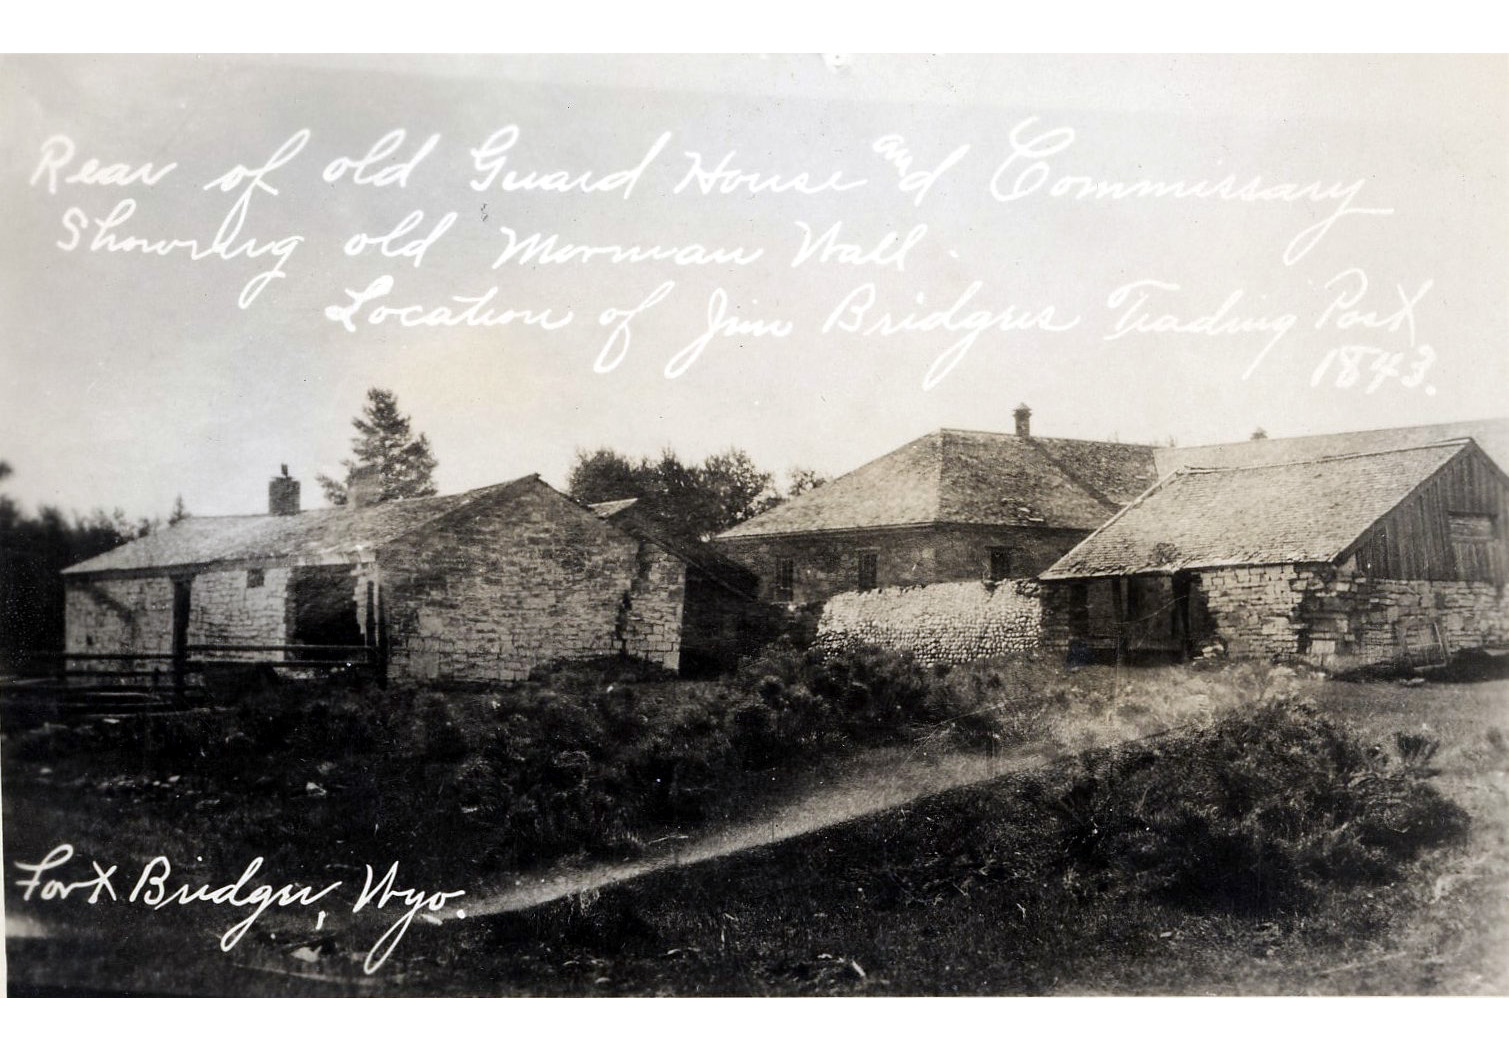 Rear of old Guard House and Commissary
Showing old Morman Wall.
Location of Jim Bridgers Trading Post
1843.
Fort Bridger, Wyo.